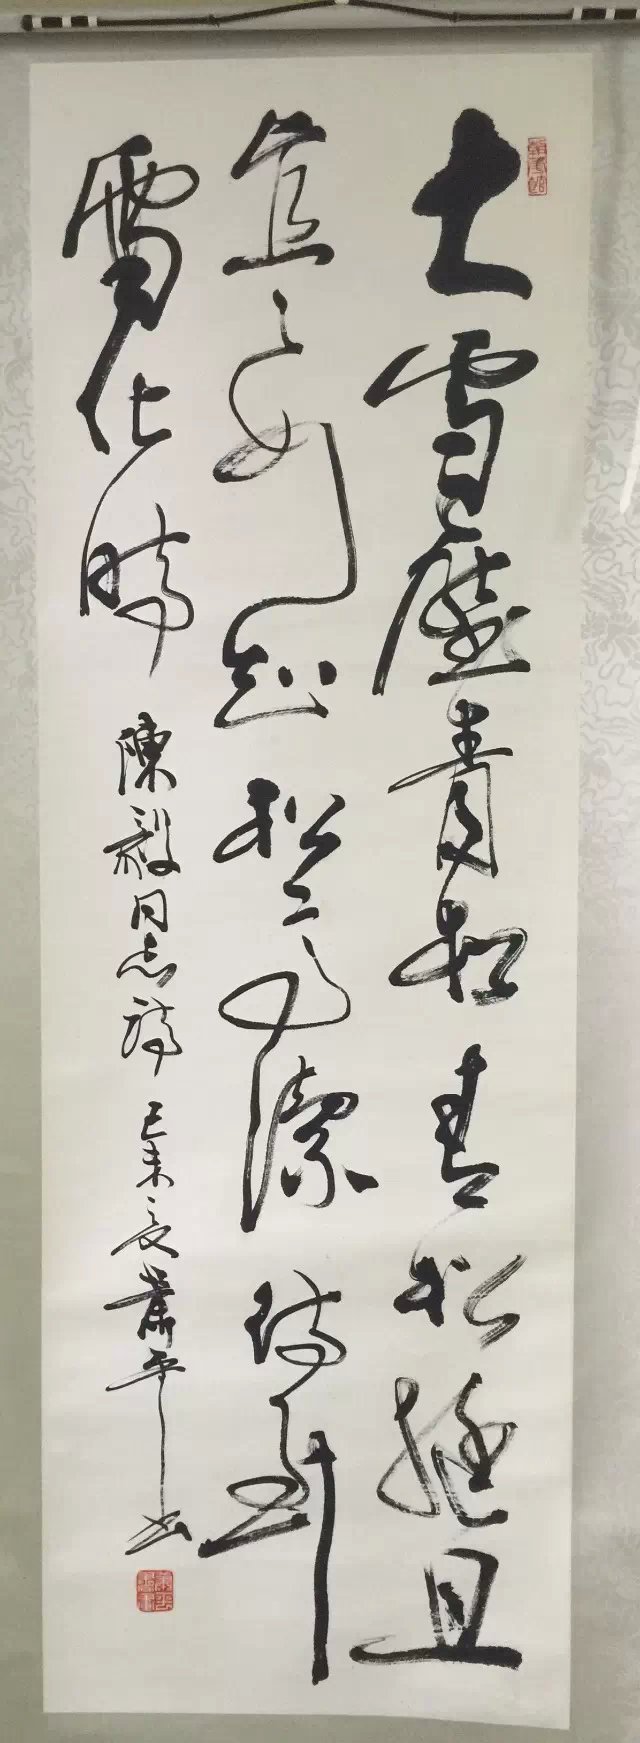 大雪壓青松青松挺且
直要知松高潔待到
雪化時
陳毅同志詩 己未夏 蕭平书